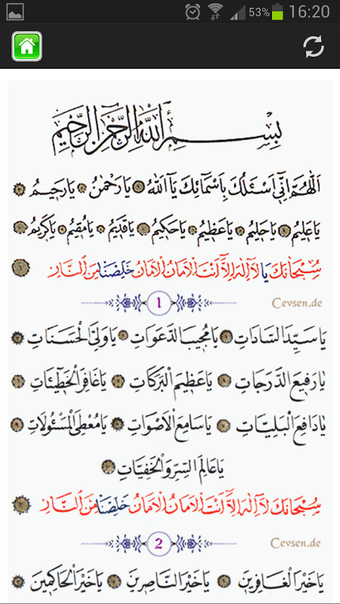 53% 16:20
بِسْمِ اللّٰهِ الرَّحْمٰنِ الرَّحِيمِ
اَللّٰهُمَّ اِنِّي اَسْئَلُكَ بِاَسْمَائِكَ يَا اَللّٰهُ يَا رَحْمٰنُ يَا رَحِيمُ
يَا عَلِيمُ يَا حَلِيمُ يَا عَظِيمُ يَا حَكِيمُ يَا قَدِيمُ يَا مُقِيمُ يَا كَرِيمُ
سُبْحَانَكَ يَا لَا اِلٰهَ اِلَّا اَنْتَ الْاَمَانُ الْاَمَانُ خَلِّصْنَا مِنَ النَّارِ
1 Cevsen.de
يَا سَيِّدَ السَّادَاتِ يَا مُجِيبَ الدَّعَوَاتِ يَا وَلِيَّ الْحَسَنَاتِ
يَا رَفِيعَ الدَّرَجَاتِ يَا عَظِيمَ الْبَرَكَاتِ يَا غَافِرَ الْخَطِيئَاتِ
يَا دَافِعَ الْبَلِيَّاتِ يَا سَامِعَ الْاَصْوَاتِ يَا مُعْطِيَ الْمَسْؤُلَاتِ
يَا عَالِمَ السِّرِّ وَالْخَفِيَّاتِ
سُبْحَانَكَ لَا اِلٰهَ اِلَّا اَنْتَ الْاَمَانُ الْاَمَانُ خَلِّصْنَا مِنَ النَّارِ
2 Cevsen.de
يَا خَيْرَ الْغَافِرِينَ يَا خَيْرَ النَّاصِرِينَ يَا خَيْرَ الْحَاكِمِينَ